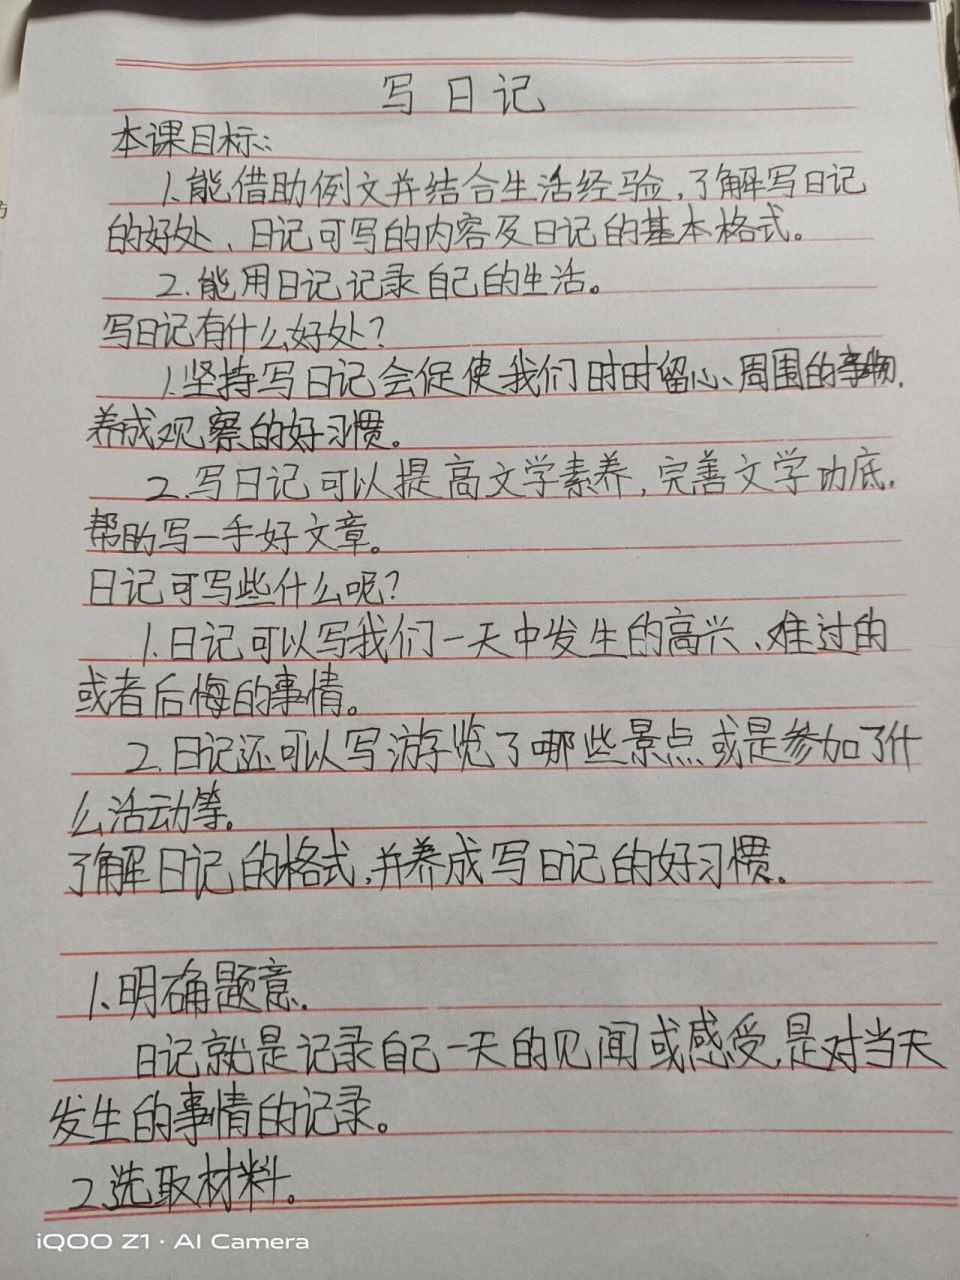 写日记
本课目标：
1.能借助例文并结合生活经验，了解写日记
的好处、日记可写的内容及日记的基本格式。
2.能用日记记录自己的生活。
写日记有什么好处？
1.坚持写日记会促使我们时时留心、周围的事物.
养成观察的好习惯。
2.写日记可以提高文学素养，完善文学功底.
帮助写一手好文章。
日记可写些什么呢？
1.日记可以写我们一天中发生的高兴、难过的
或者后悔的事情。
2.日记还可以写游览了哪些景点或是参加了什
么活动等。
了解日记的格式,并养成写日记的好习惯。
1.明确题意.
日记就是记录自己一天的见闻或感受,是对当天
发生的事情的记录。
2.选取材料。
iQOO Z1 · AI Camera